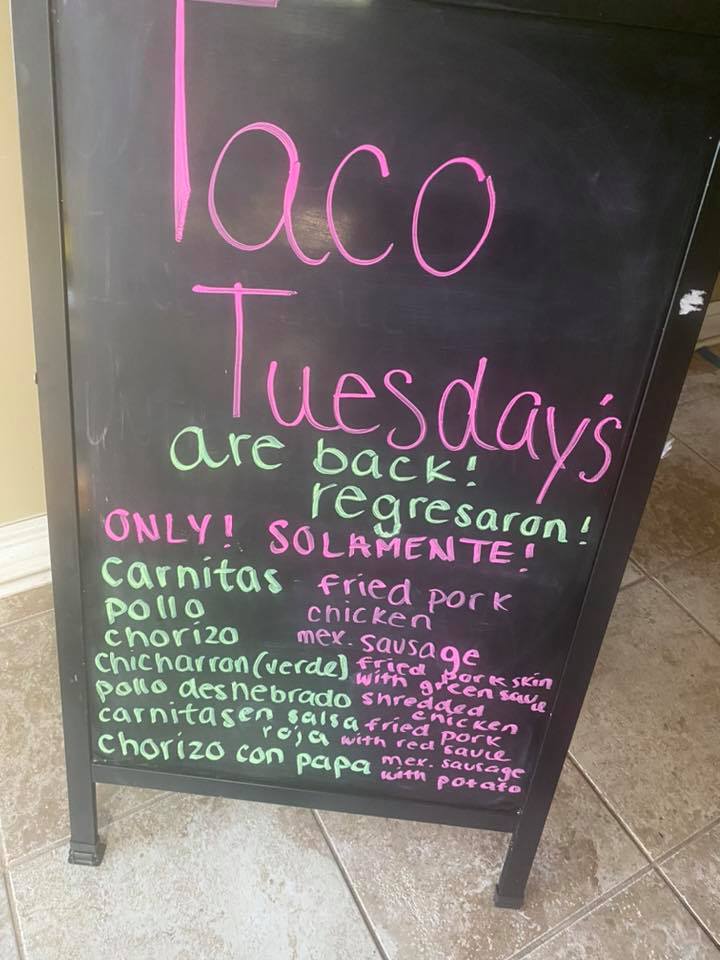 Taco
Tuesday's
are back!
regresaron!
ONLY! SOLAMENTE!
Carnitas fried pork
pollo chicken
chorizo mex. sausage
chicharron (verde) fried pork skin with green sauce
pollo deshebrado shredded chicken
carnitas en salsa roja fried pork with red sauce
chorizo con papa mex. sausage with potato